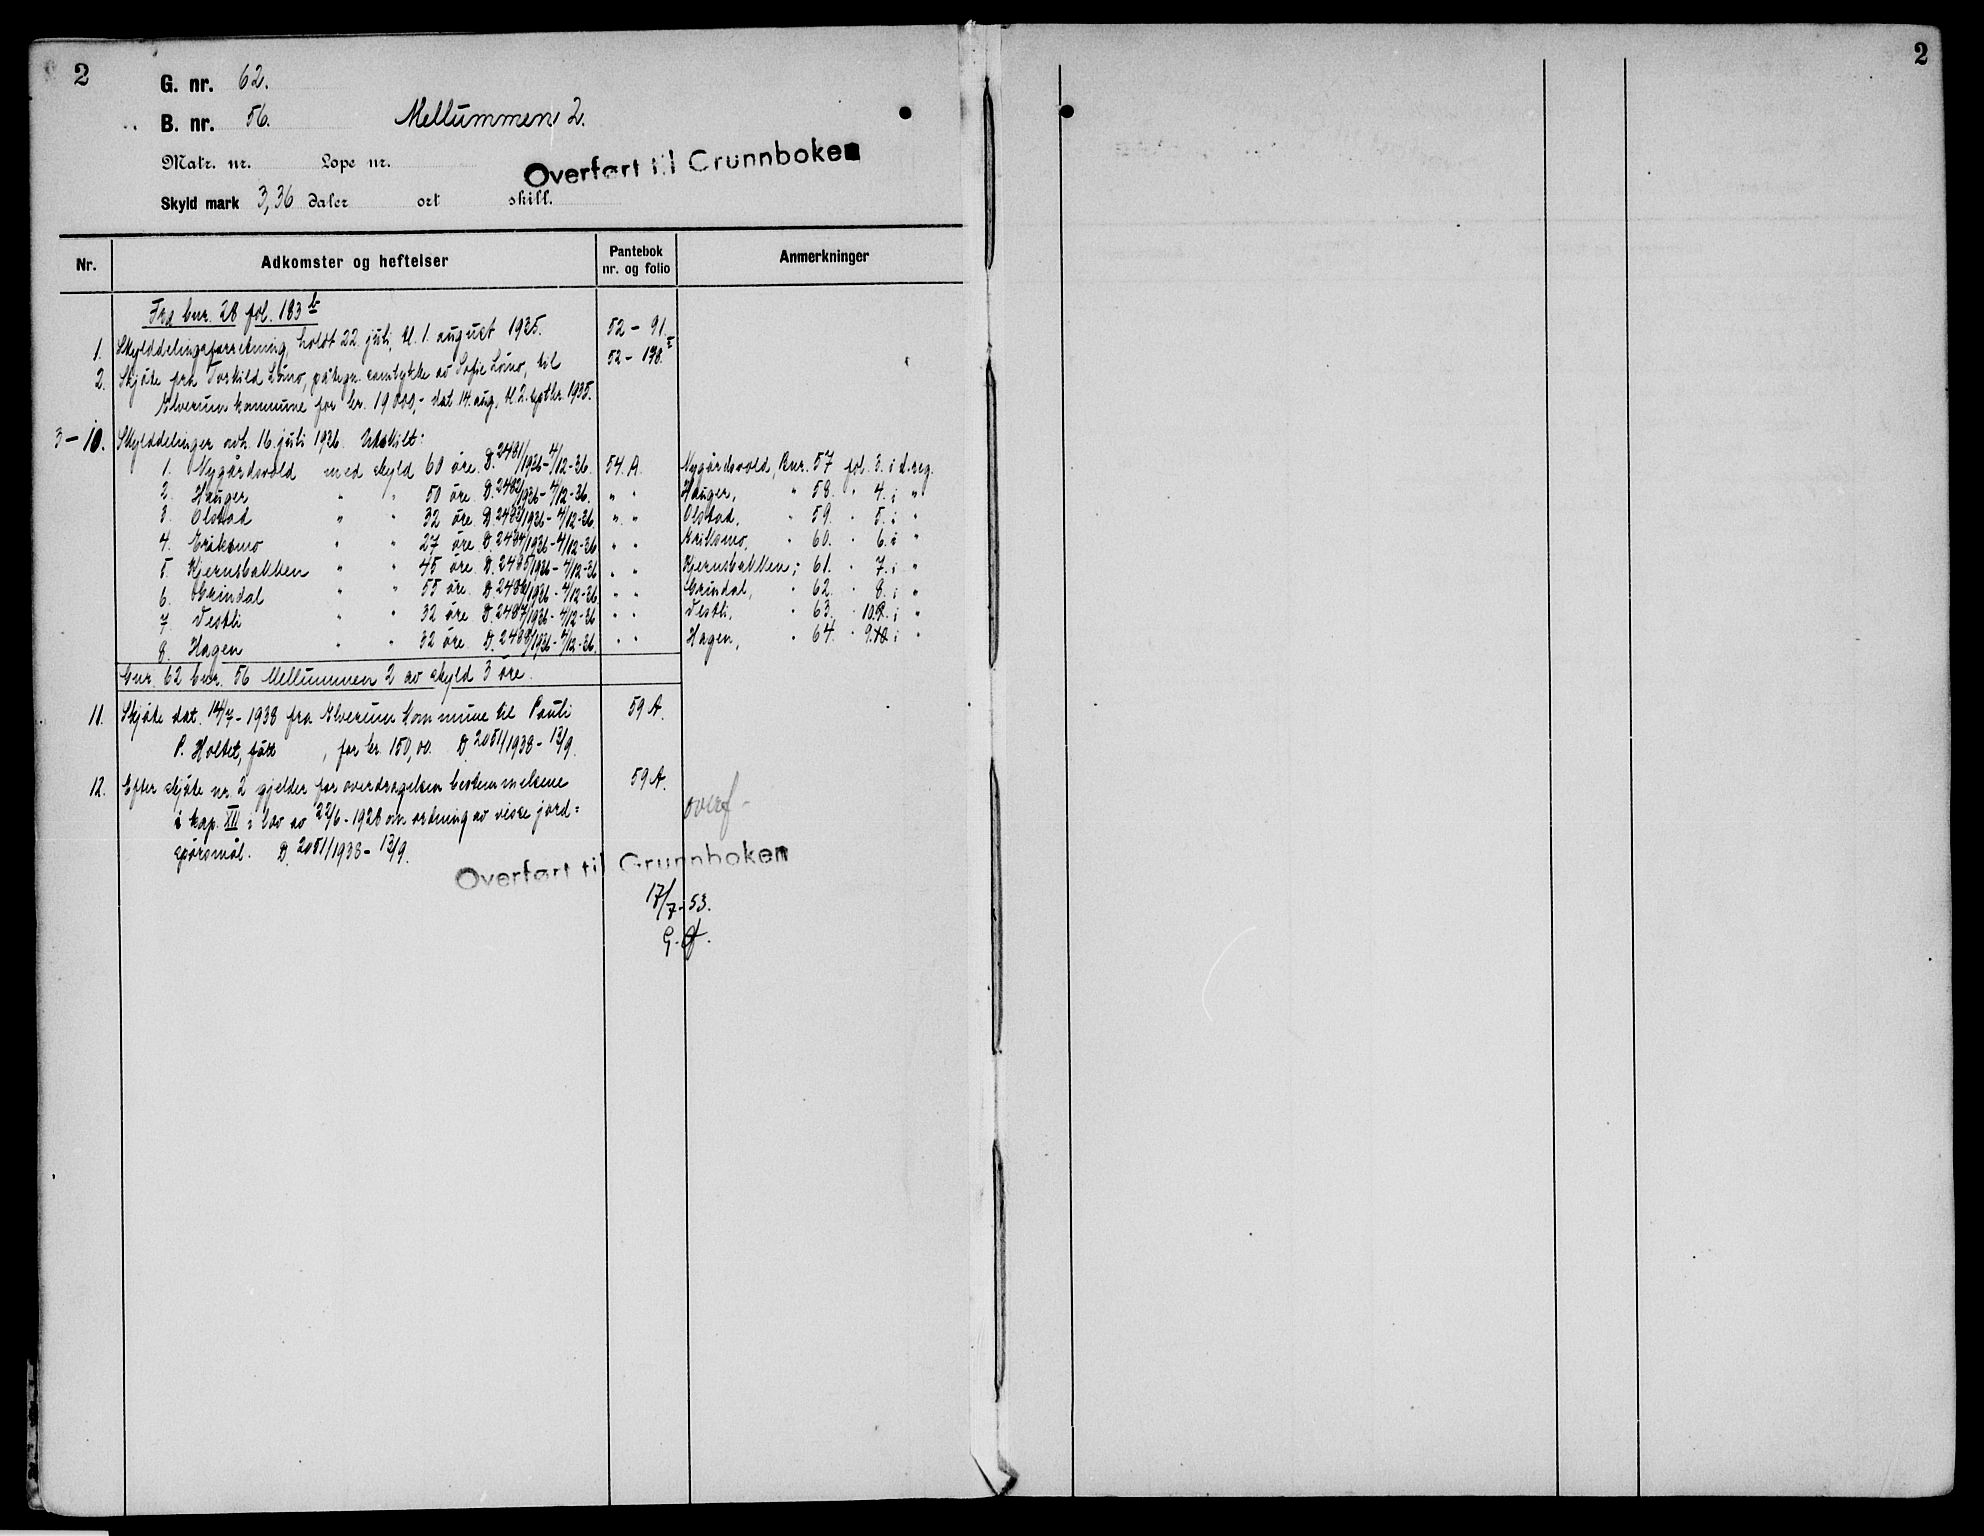 2
G. nr. 62.
B. nr. 56. Mellummen 2.
Matr. nr. Lope nr.
Overført til Grunnboken
Skyld mark 3,36 daler ort skill.
Nr. Adkomster og heftelser Pantebok nr. og folio Anmerkninger
Fra bnr. 28 fol. 183 b
1. Skylddelingsforretning, holdt 22. juli, tl. 1. august 1935. 52 - 91.
2. Skjøte fra Torkild Løno, påtegn. samtykke av Sofie Løno, til 52 - 198.
Elverum kommune for kr. 19 000,- dat. 14. aug. tl. 2. septbr. 1935.
3 - 10. Skylddelinger avh. 16. juli 1936. Utskilt:
1. Nygårdsvold med skyld 60 øre. D. 2481/1936 - 4/12-36. 54 A. Nygårdsvold, Bnr. 57 fol. 3. i d. reg.
2. Hauger " " 50 øre. D. 2482/1936 - 4/12-36. " " Hauger, " 58. " 4. i "
3. Olstad " " 32 øre. D. 2483/1936 - 4/12-36. " " Olstad, " 59. " 5. i "
4. Eriksmo " " 27 øre. D. 2484/1936 - 4/12-36 " " Eriksmo, " 60. " 6. i "
5. Kjernsbakken " " 45 øre. D. 2485/1936 - 4/12-36 " " Kjernsbakken, " 61. " 7. i "
6. Grindal " " 55 øre. D. 2486/1936 - 4/12-36 " " Grindal, " 62. " 8. i "
7. Vestli " " 32 øre. D. 2487/1936 - 4/12-36 " " Vestli, " 63. " 10. 9. i "
8. Hagen " " 32 øre. D. 2488/1936 - 4/12-36. " " Hagen, " 64. " 9. 10. i "
Gnr. 62 bnr. 56 Mellummen 2 av skyld 3 øre.
11. Skjøte dat. 14/7 - 1938 fra Elverum kommune til Pauli 59 A.
P. Holtet, født , for kr. 150,00. D. 2051/1938 - 13/9.
12. Efter skjøte nr. 2 gjelder for overdragelsen bestemmelsene 59 A.
i kap. XII i lov av 22/6 - 1928 om ordning av visse jord=
overf -
spørsmål. D. 2051/1938 - 13/9.
Overført til Grunnboken
17/7 - 53.
2